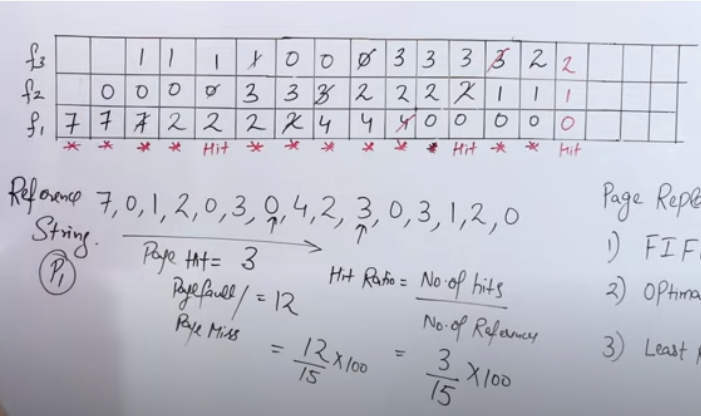 f3 1 1 1 1 0 0 0 3 3 3 3 2 2
f2 0 0 0 0 3 3 3 2 2 2 2 1 1 1
f1 7 7 7 2 2 2 2 4 4 4 0 0 0 0 0
* * * * Hit * * * * * * Hit * * Hit
Reference 7, 0, 1, 2, 0, 3, 0, 4, 2, 3, 0, 3, 1, 2, 0
String.
P1
Page Hit = 3
Page fault / = 12
Page Miss
= 12/15 × 100
Hit Ratio = No. of hits
No. of References
= 3/15 × 100
Page
1) FIF
2) Optima
3) Least